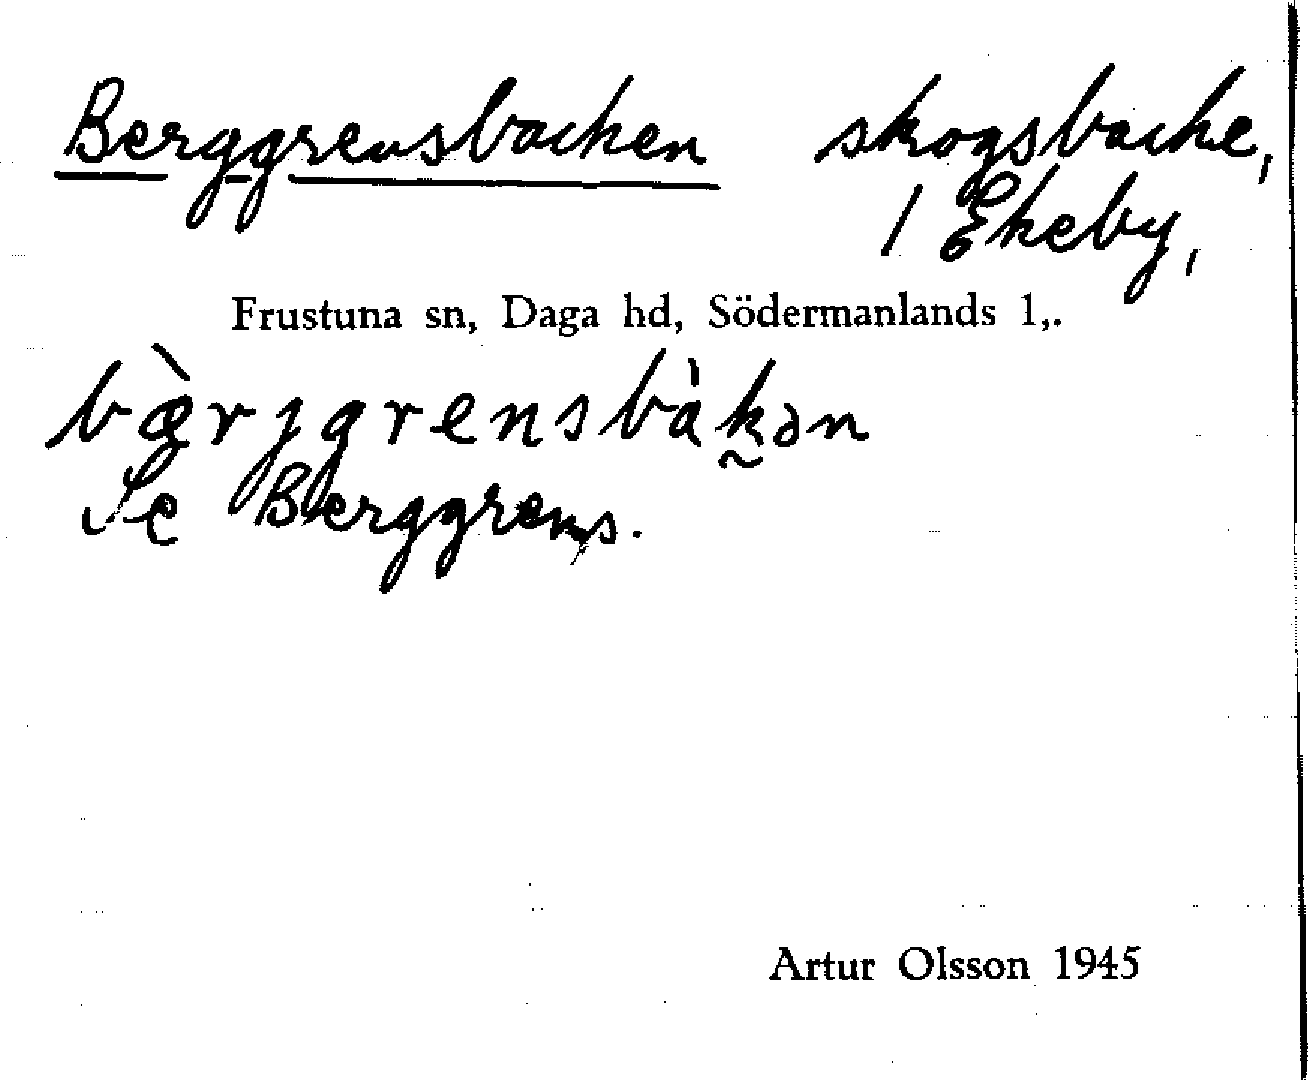 Berggrensbacken skogsbacke,
/ Ekeby,
Frustuna sn, Daga hd, Södermanlands l,.
bæ̀rjgrensbàk̰ən
Se Berggrens.
Artur Olsson 1945